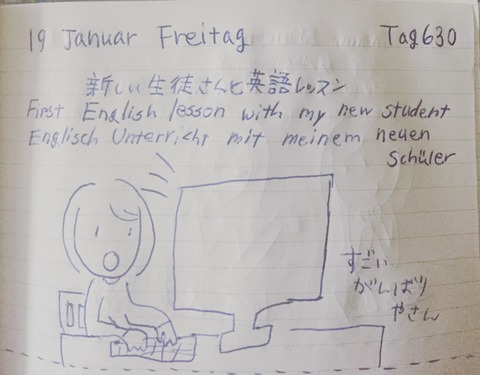 19 Januar Freitag Tag630
新しい生徒さんと英語レッスン
First English lesson with my new student
Englisch Unterricht mit meinem neuen
Schüler
すごい
がんばり
やさん